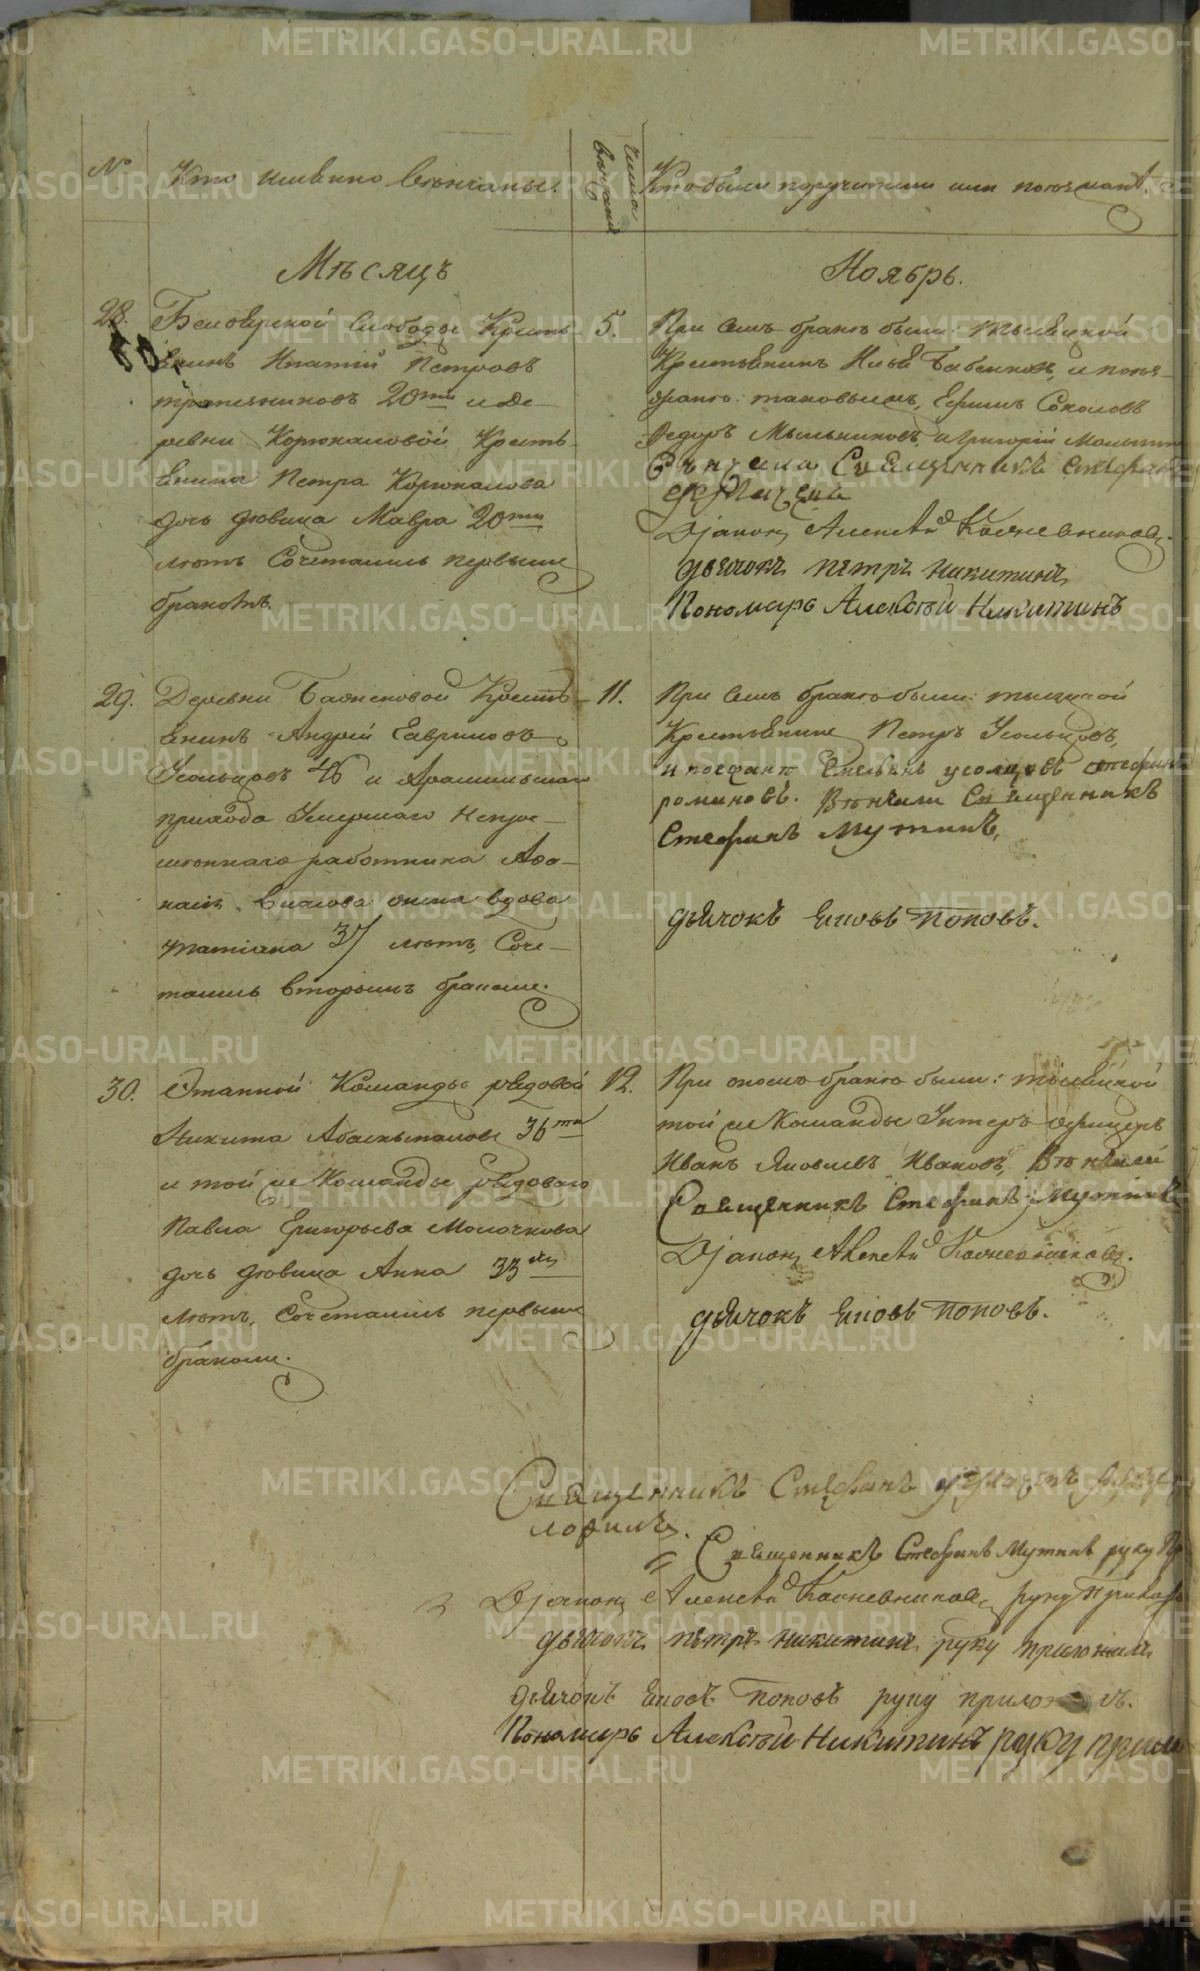 № Кто именно венчаны.
Числа венчаній
Кто были поручители или поезжанѣ.
Мѣсяцъ
Ноябрь.
28. Белоярской слободы Кресть-
янинъ Ипатій Петровъ
трапезниковъ 20ти и де-
ревни Корюкаловой Кресть-
янина Петра Корюкалова
дочь дѣвица Мавра 20ти
лѣтъ Сочетались первымъ
бракомъ.
5. При семъ бракѣ были: тысяцкой
Крестьянинъ Илья Бабенковъ, и поез-
жанѣ: таковыежъ, Ефимъ Соколовъ
Федоръ Мыльниковъ, и Григорій
Вѣнчали Священникъ Стефан
Діаконъ Алексѣй Кожевниковъ.
дьячокъ петръ никитинъ
Пономарь Алексѣй Никитинъ
29. Деревни Баженовой Кресть-
янинъ Андрей Гавриловъ
Усольцовъ 46 и Арамильскаго
прихода Умершаго Непре-
мѣннаго работника Афа-
насія Власова жена вдова
татіана 37 лѣтъ, Соче-
тались вторымъ бракомъ.
11. При семъ бракѣ были: тысяцкой
Крестьянинъ Петръ Усольцовъ,
и поезжанѣ Емельянъ усолцовъ стефанъ
романовъ. Вѣнчали Священникъ
Стефанъ Мутинъ,
дьячокъ Яковъ Поповъ.
30. Этапной Команды рядовой
Никита 36ти
и той же Команды рядоваго
Павла Григорьева Молочкова
дочь дѣвица Анна 33хъ
лѣтъ, Сочетались первымъ
бракомъ.
12. При ономъ бракѣ были: тысяцкой
той же Команды Унтеръ офицеръ
Иванъ Яковлевъ Ивановъ, Вѣнчалъ
Священникъ Стефанъ Мутинъ
Діаконъ Алексѣй Кожевниковъ.
дьячокъ Яковъ Поповъ.
Священникъ Стефанъ
ложилъ.
Священникъ Стефанъ Мутинъ руку пр
Діаконъ Алексѣй Кожевниковъ руку прилож
дьячокъ петръ никитинъ руку приложилъ
дьячокъ Яковъ Поповъ руку приложилъ.
Пономарь Алексѣй Никитинъ руку прило
METRIKI.GASO-URAL.RU